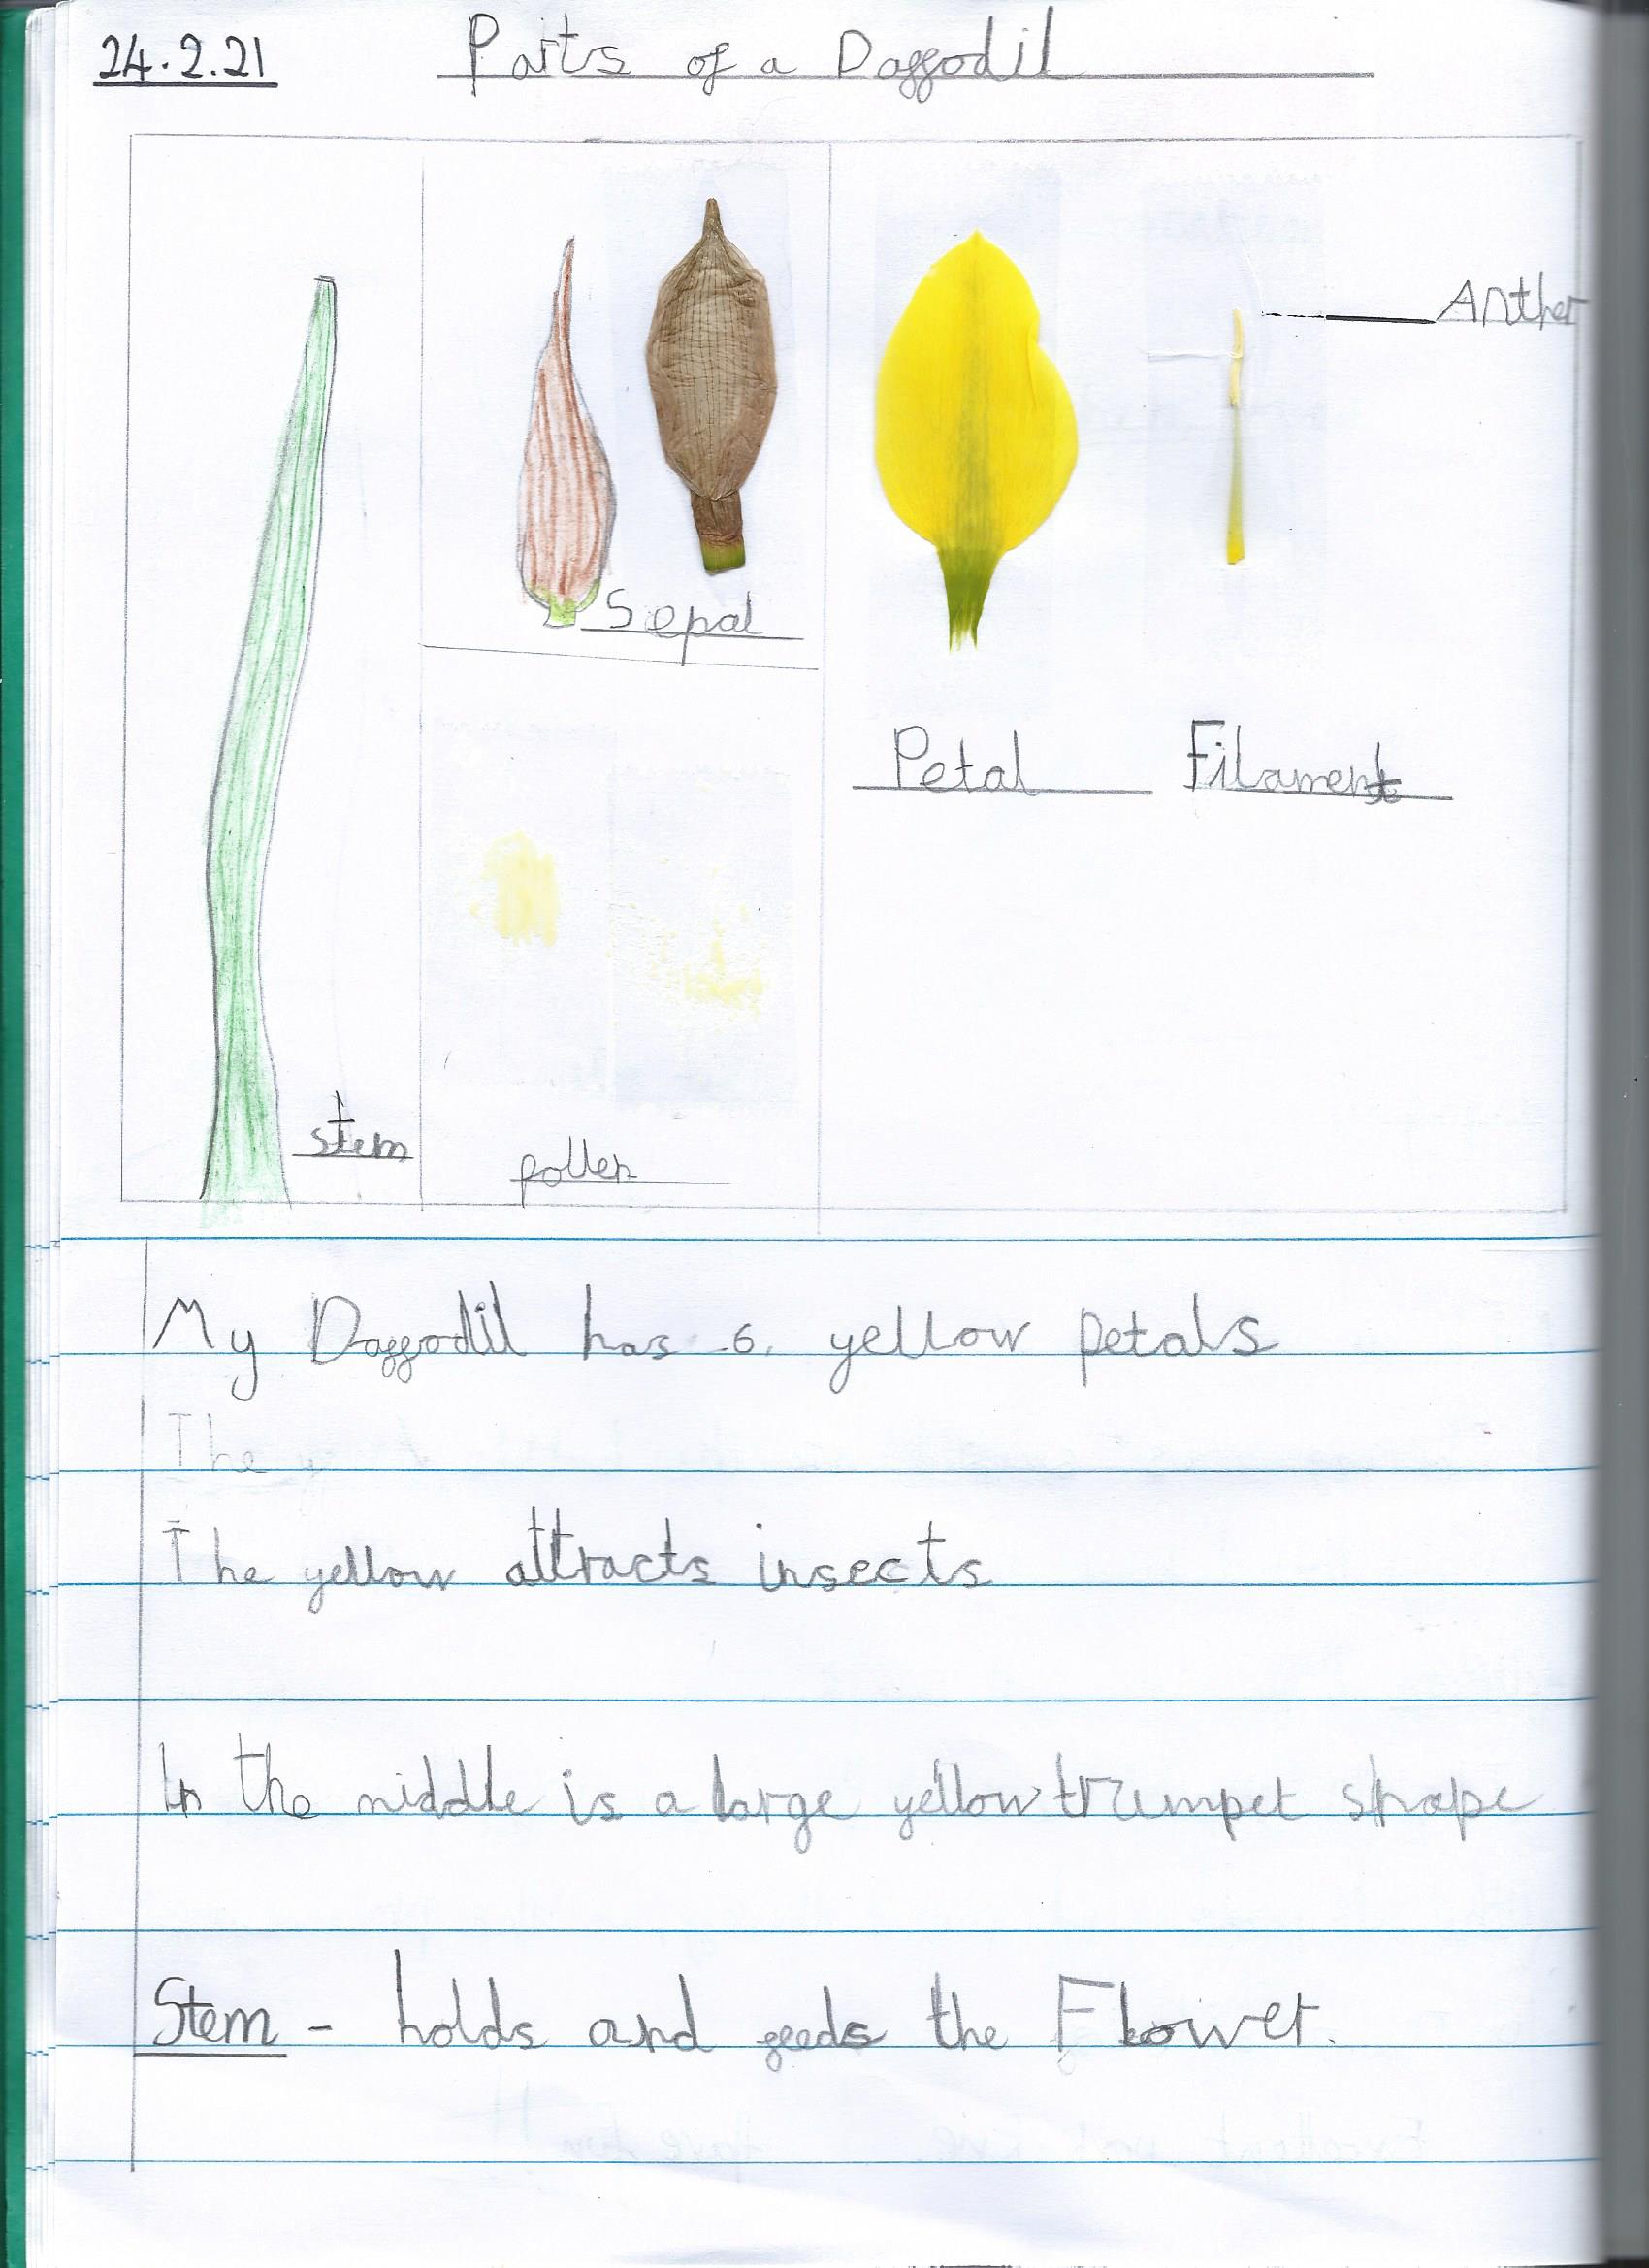 24.2.21 Parts of a Daffodil
Anther
Sepal
Petal Filament
stem
pollen
My Daffodil has 6. yellow petals
The y
The yellow attracts insects
In the middle is a large yellow trumpet shape
Stem - holds and feeds the Flower.